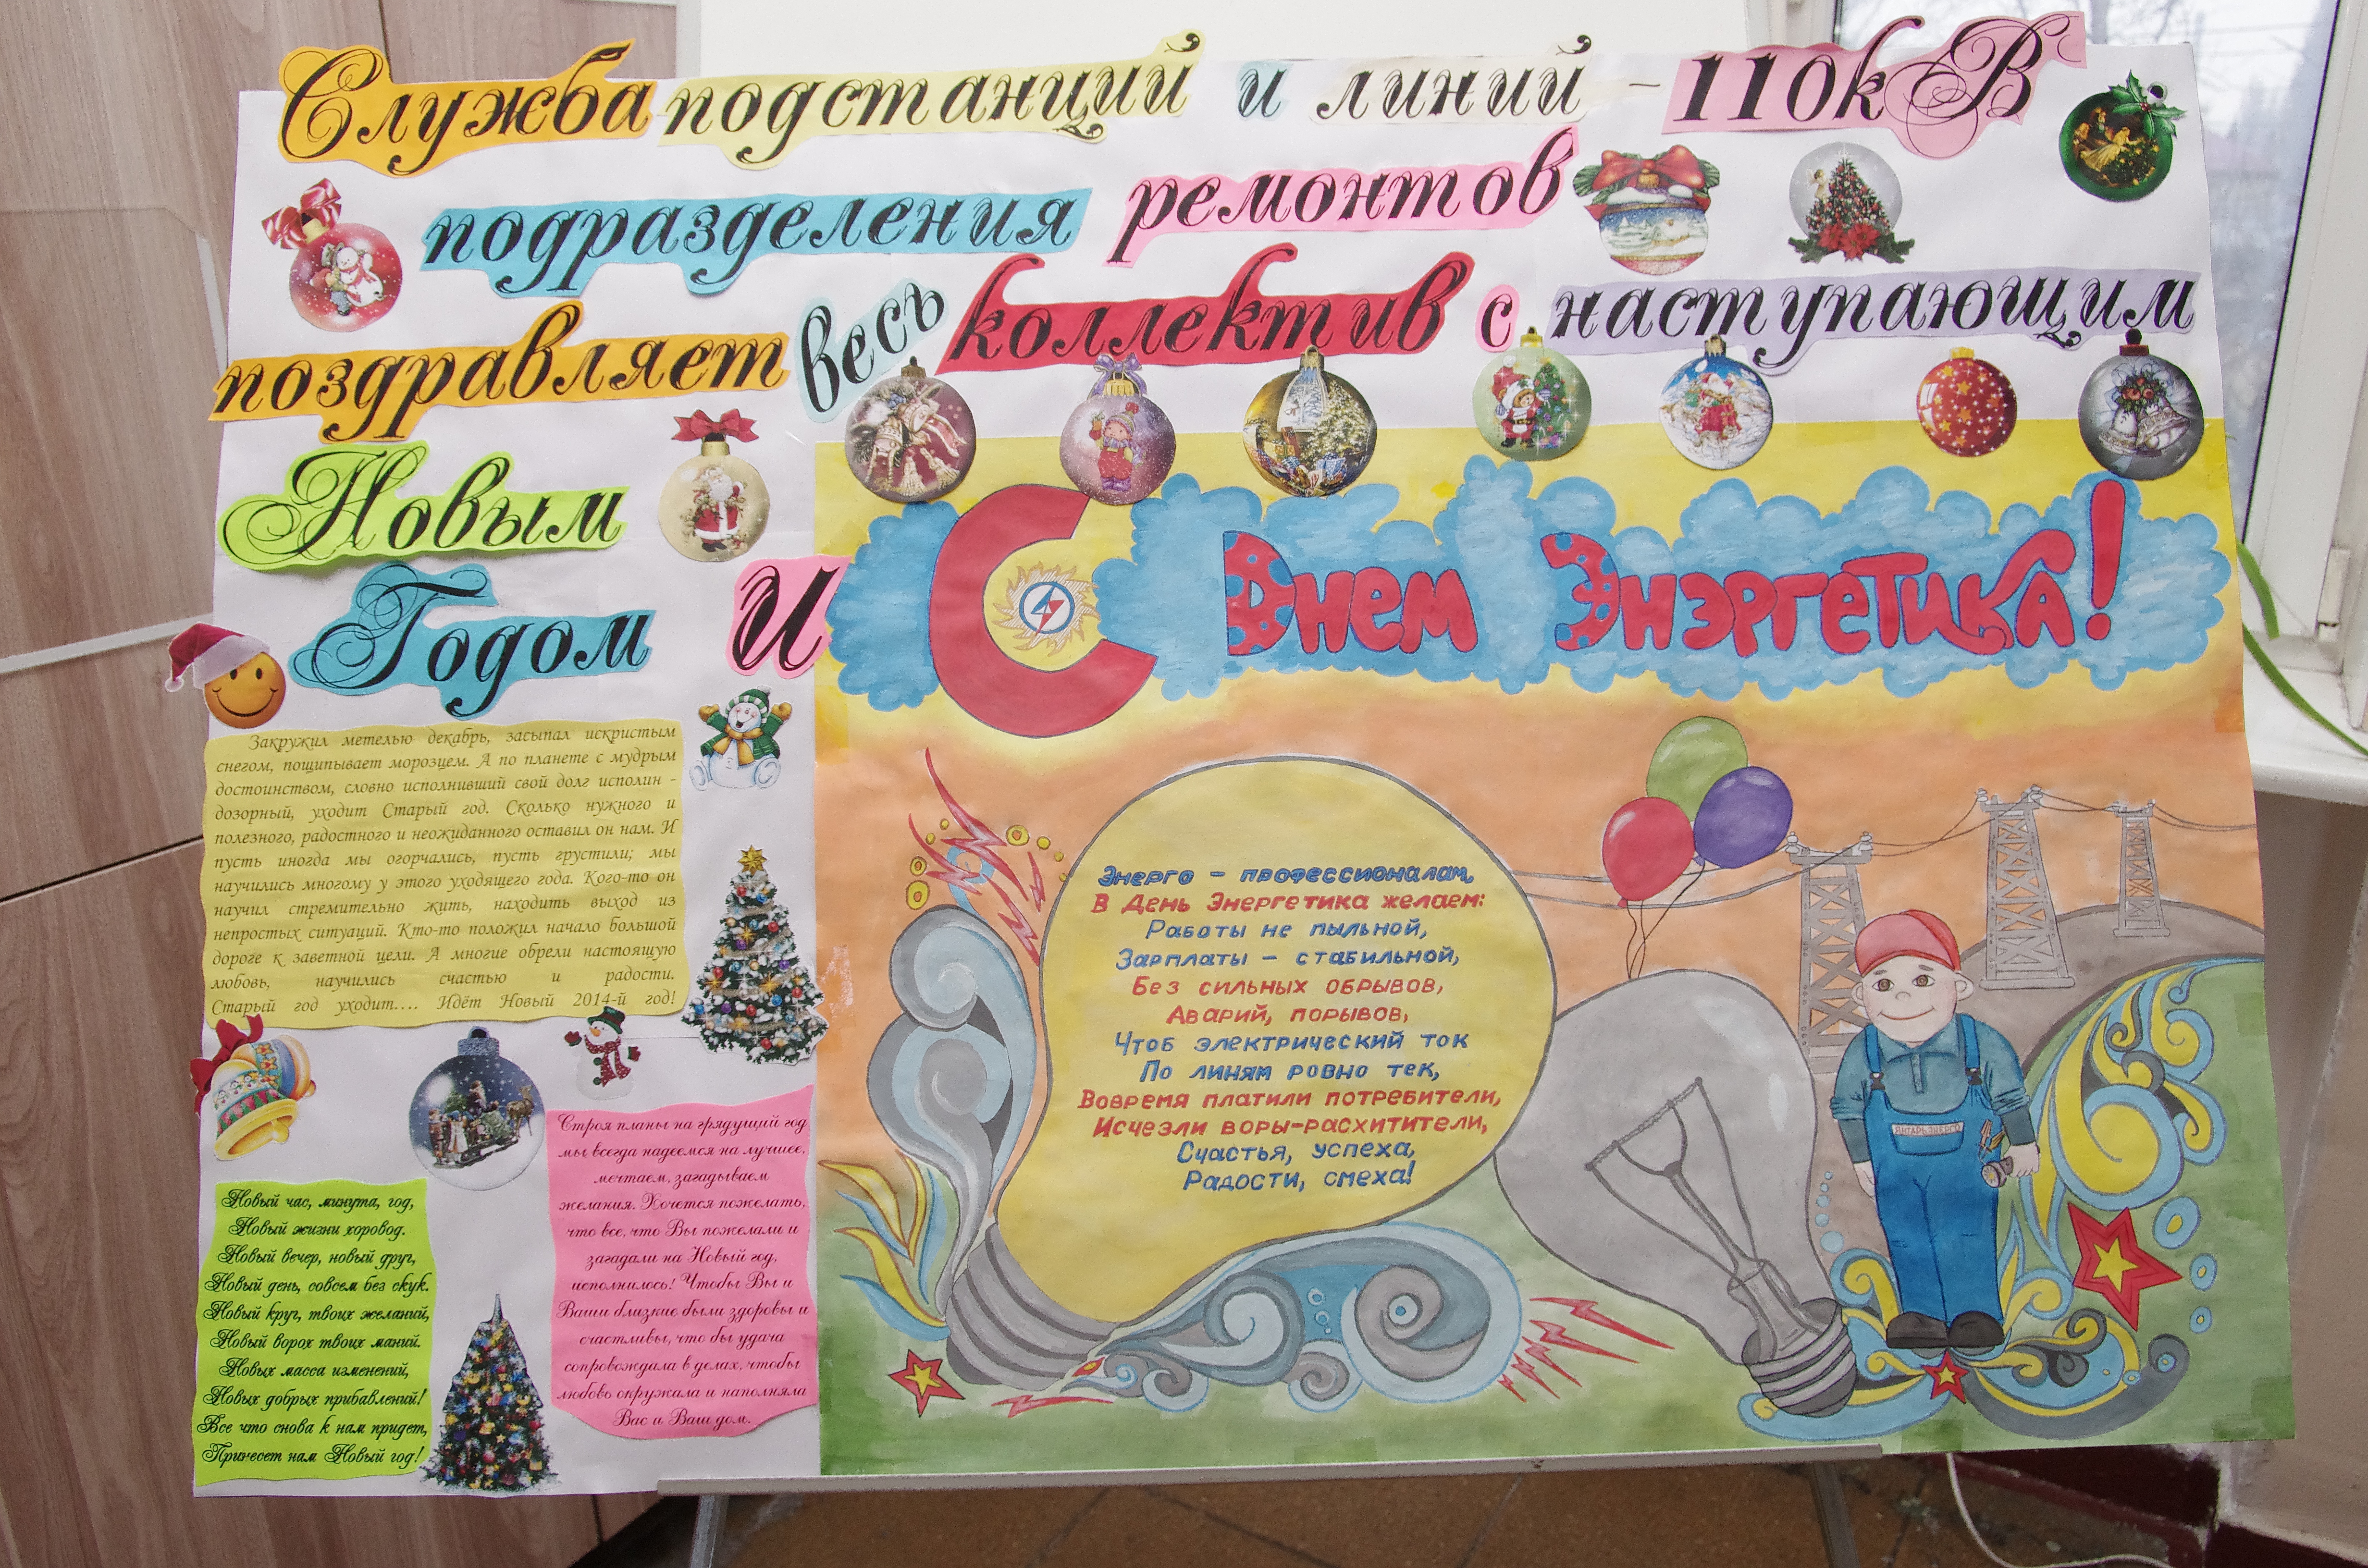 Служба подстанций и линий - 110кВ
подразделения ремонтов
поздравляет весь коллектив с наступающим
Новым
Годом И
С Днем Энэргетика!
Закружил метелью декабрь, засыпал искристым
снегом, пощипывает морозцем. А по планете с мудрым
достоинством, словно исполнивший свой долг исполин -
дозорный, уходит Старый год. Сколько нужного и
полезного, радостного и неожиданного оставил он нам. И
пусть иногда мы огорчались, пусть грустили; мы
научились многому у этого уходящего года. Кого-то он
научил стремительно жить, находить выход из
непростых ситуаций. Кто-то положил начало большой
дороге к заветной цели. А многие обрели настоящую
любовь, научились счастью и радости.
Старый год уходит.... Идёт Новый 2014-й год!
Новый час, минута, год,
Новый жизни хоровод.
Новый вечер, новый друг,
Новый день, совсем без скук.
Новый круг, твоих желаний,
Новый ворох твоих маний.
Новых масса изменений,
Новых добрых прибавлений!
Все что снова к нам придет,
Принесет нам Новый год!
Строя планы на грядущий год
мы всегда надеемся на лучшее,
мечтаем, загадываем
желания. Хочется пожелать,
что все, что Вы пожелали и
загадали на Новый год,
исполнилось! Чтобы Вы и
Ваши близкие были здоровы и
счастливы, что бы удача
сопровождала в делах, чтобы
любовь окружала и наполняла
Вас и Ваш дом.
Энерго - профессионалам,
В День Энергетика желаем:
Работы не пыльной,
Зарплаты - стабильной,
Без сильных обрывов,
Аварий, порывов,
Чтоб электрический ток
По линям ровно тек,
Вовремя платили потребители,
Исчезли воры-расхитители,
Счастья, успеха,
Радости, смеха!
ЯНТАРЬЭНЕРГО